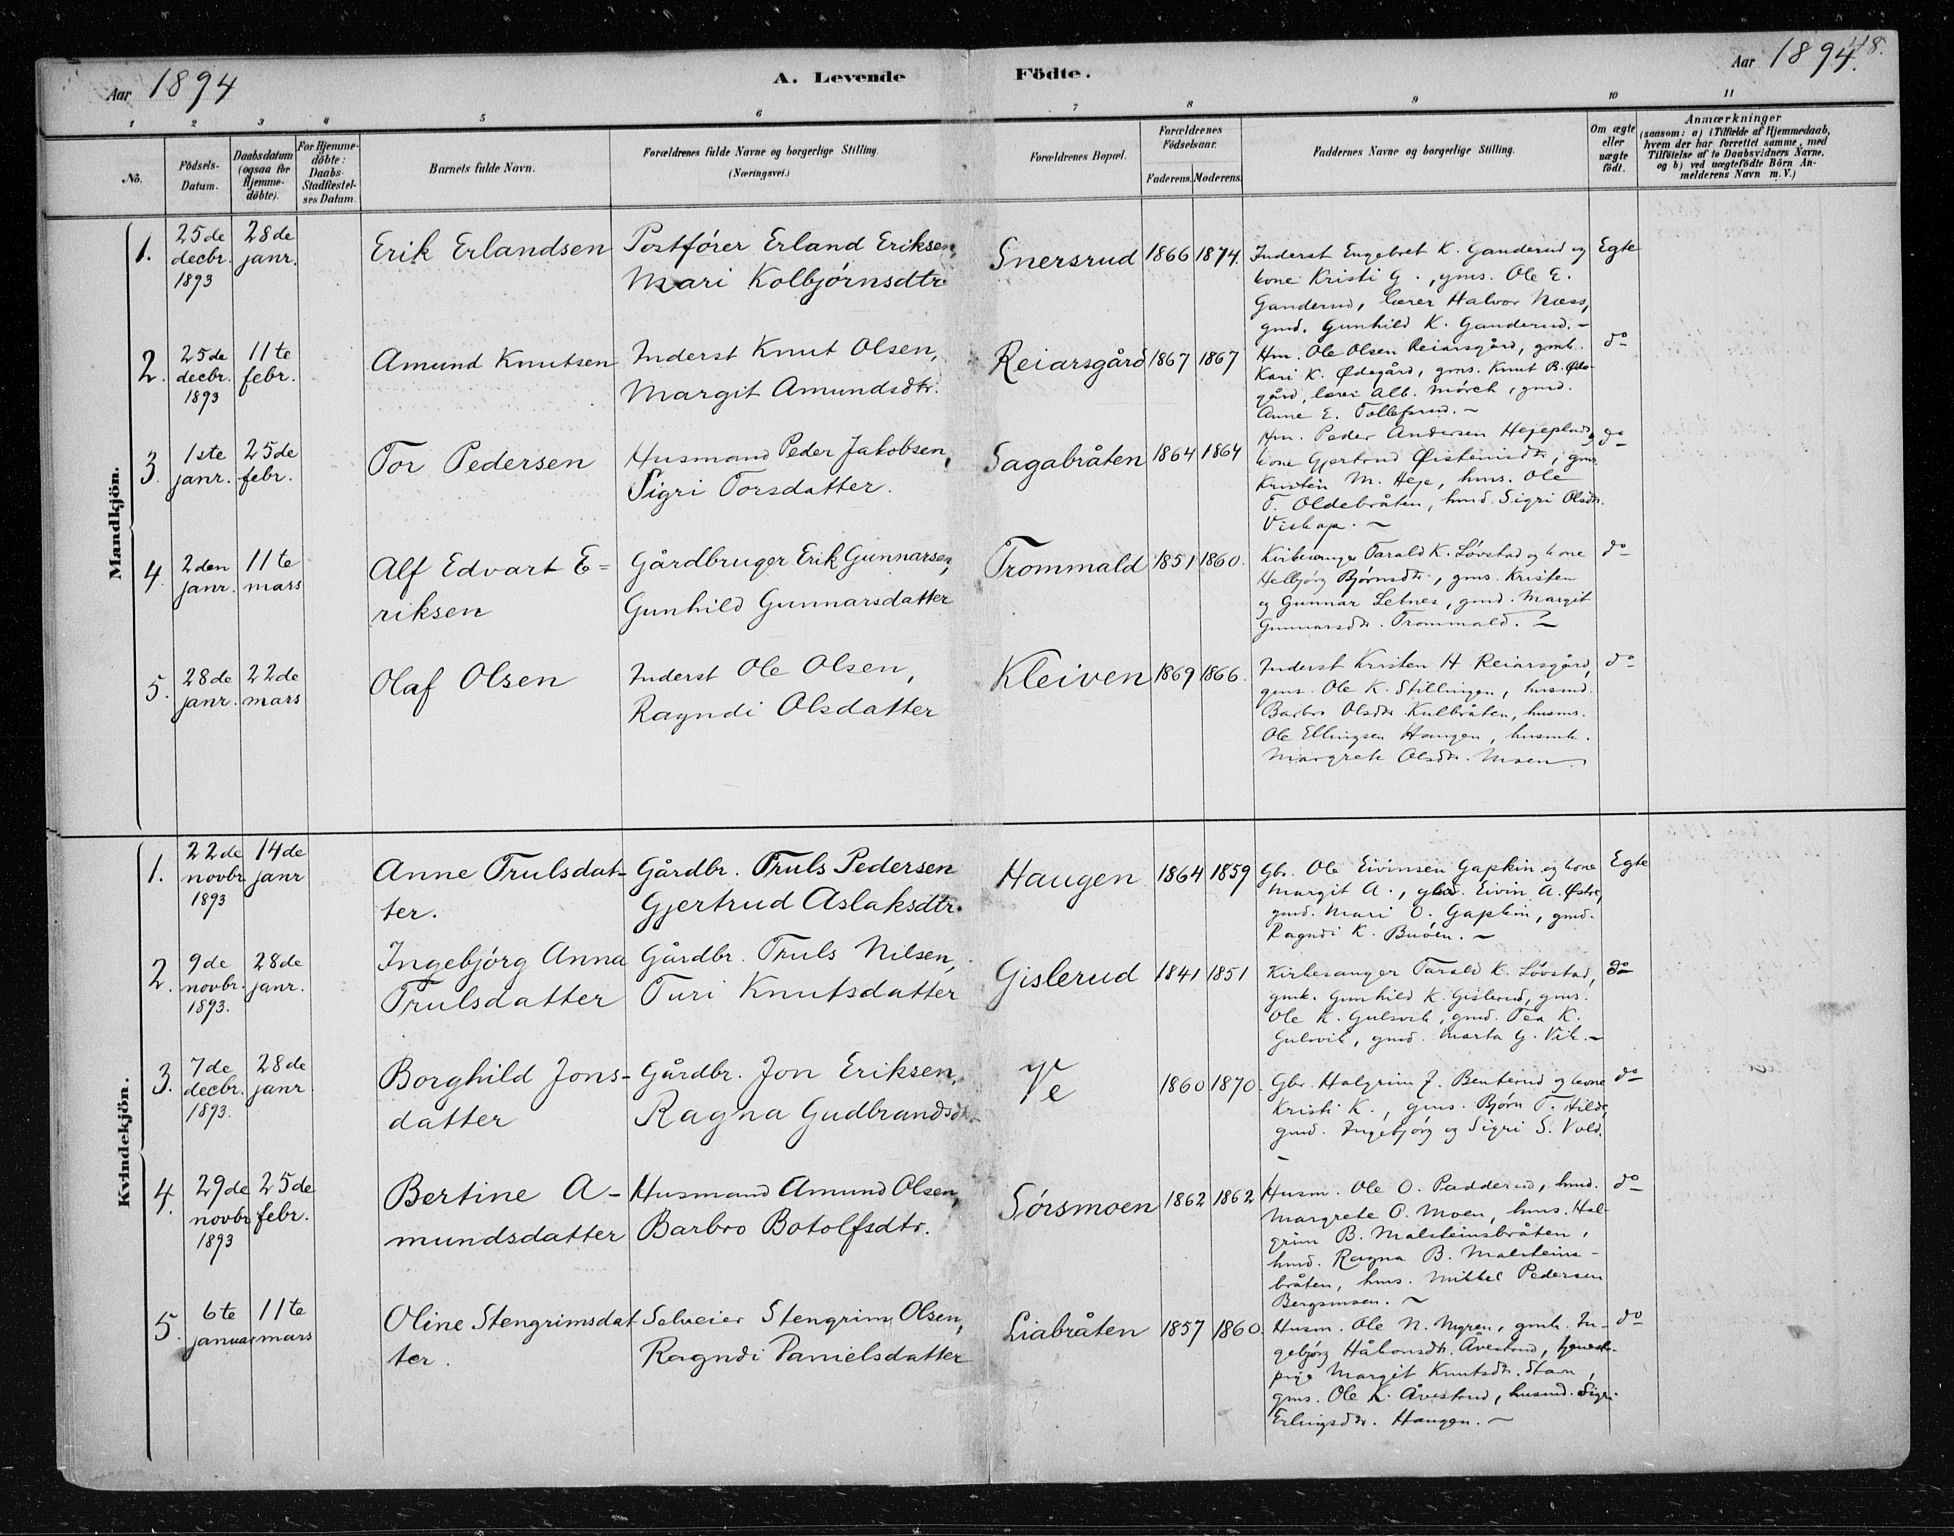 Aar 1894
A. Levende
Födte.
Aar 1894.
48.
1 2 3 4 5 6 7 8 9 10 11
No.
Födsels-
Datum.
Daabsdatum
(ogsaa for
Hjemme-
döbte).
For Hjemme-
döbte:
Daabs-
Stadfæstel-
ses Datum.
Barnets fulde Navn.
Forældrenes fulde Navne og borgerlige Stilling.
(Næringsvei.)
Forældrenes Bopæl.
Forældrenes
Födselsaar.
Faderens. Moderens.
Faddernes Navne og borgerlige Stilling.
Om ægte
eller
uægte
födt.
Anmærkninger
(saasom: a) i Tilfælde af Hjemmedaab,
hvem der har forrettet samme, med
Tilföielse af to Daabsvidners Navne,
og b) ved uægtefödte Börn An-
melderens Navn m. V.)
Mandkjön.
1.
25de
decbr.
1893
28de
janr.
Erik Erlandsen
Postfører Erland Eriksen,
Mari Kolbjørnsdtr.
Snersrud
1866 1874.
Inderst Engebret K. Ganderud og
kone Kristi G., gms. Ole E.
Ganderud, lærer Halvor Næss,
gmd. Gunhild K. Ganderud. –
Egte
2.
25de
decbr.
1893
11te
febr.
Amund Knutsen
Inderst Knut Olsen,
Margit Amundsdtr.
Reiarsgård
1867 1867
Hm. Ole Olsen Reiarsgård, gmk.
Kari K. Ødegård, gms. Knut B. Øde-
gård, lærer Alb. Mørch, gmd.
Anne E. Tollefsrud. –
do
3.
1ste
janr.
25de
febr.
Tor Pedersen
Husmand Peder Jakobsen,
Sigri Torsdatter.
Sagabråten
1864 1864
Hm. Peder Andersen Hejeplads og
kone Gjertrud Øisteinsdtr., gms.
Kristen M. Heje, hms. Ole
T. Oldebråten, hmd. Sigri Olsdtr.
Viskop. –
do
4.
2den
janr.
11te
mars
Alf Edvart E=
riksen
Gårdbruger Erik Gunnarsen,
Gunhild Gunnarsdatter
Trommald
1851 1860.
Kirkesanger Tarald K. Løvstad og kone
Helbjørg Bjørnsdtr., gms. Kristen
og Gunnar Letnes, gmd. Margit
Gunnarsdtr. Trommald. –
do
5.
28de
janr.
22de
mars
Olaf Olsen
Inderst Ole Olsen,
Ragndi Olsdatter
Kleiven
1869 1866.
Inderst Kristen H Reiarsgård,
gms. Ole K. Stillingen, husmd.
Barbro Olsdtr. Kulbråten, husms.
Ole Ellingsen Haugen, husmk.
Margrete Olsdtr. Moen.
do
Kvindekjön.
1.
22de
novbr
1893
14de
janr
Anne Trulsdat-
ter.
Gårdbr. Truls Pedersen
Gjertrud Aslaksdtr.
Haugen
1864 1859
Gbr. Ole Eivinsen Gapkin og kone
Margit A., Eivin A. Østre,
gmd. Mari O. Gapkin, gmd.
Ragndi K. Buøen. –
Egte
2.
9de
novbr.
1893.
28de
janr.
Ingebjørg Anna
Trulsdatter
Gårdbr. Truls Nilsen,
Turi Knutsdatter
Gislerud
1841 1851
Kirkesanger Tarald K. Løvstad,
gmk. Gunhild K. Gislerud, gms.
Ole K. Gulsvik, gmd. Tea K.
Gulsvik, gmd. Marta G. Vik. –
do
3.
7de
decbr.
1893.
28de
janr
Borghild Jons-
datter
Gårdbr. Jon Eriksen,
Ragna Gudbrandsdtr.
Ve
1860 1870.
Gbr. Halgrim J. Benterud og kone
Kristi K., gms. Bjørn T. Hilde,
gmd. Ingebjørg og Sigri S. Vold.
–
do
4.
29de
novbr
1893
25de
febr.
Bertine A-
mundsdatter
Husmand Amund Olsen,
Barbro Botolfsdtr.
Sørsmoen
1862 1862
Husm. Ole O. Padderud, hmd.
Margrete O. Moen, hms. Hal-
grim B. Malsteinsbråten,
hmd. Ragna B. Malsteins-
bråten, hms. Mikkel Pedersen
Bergsmoen. –
do
5.
6te
januar
11te
mars
Oline Stengrimsdat
ter.
Selveier Stengrim Olsen,
Ragndi Danielsdatter
Liabråten
1857 1860.
Husm. Ole N. Myren, gmk. In-
gebjørg Håkonsdtr. Åvestrud, tjeneste-
pige Margit Knutsdtr. Stavn,
gms. Ole K. Åvestrud, husmd. Sigri
Erlingsdtr. Haugen. –
do